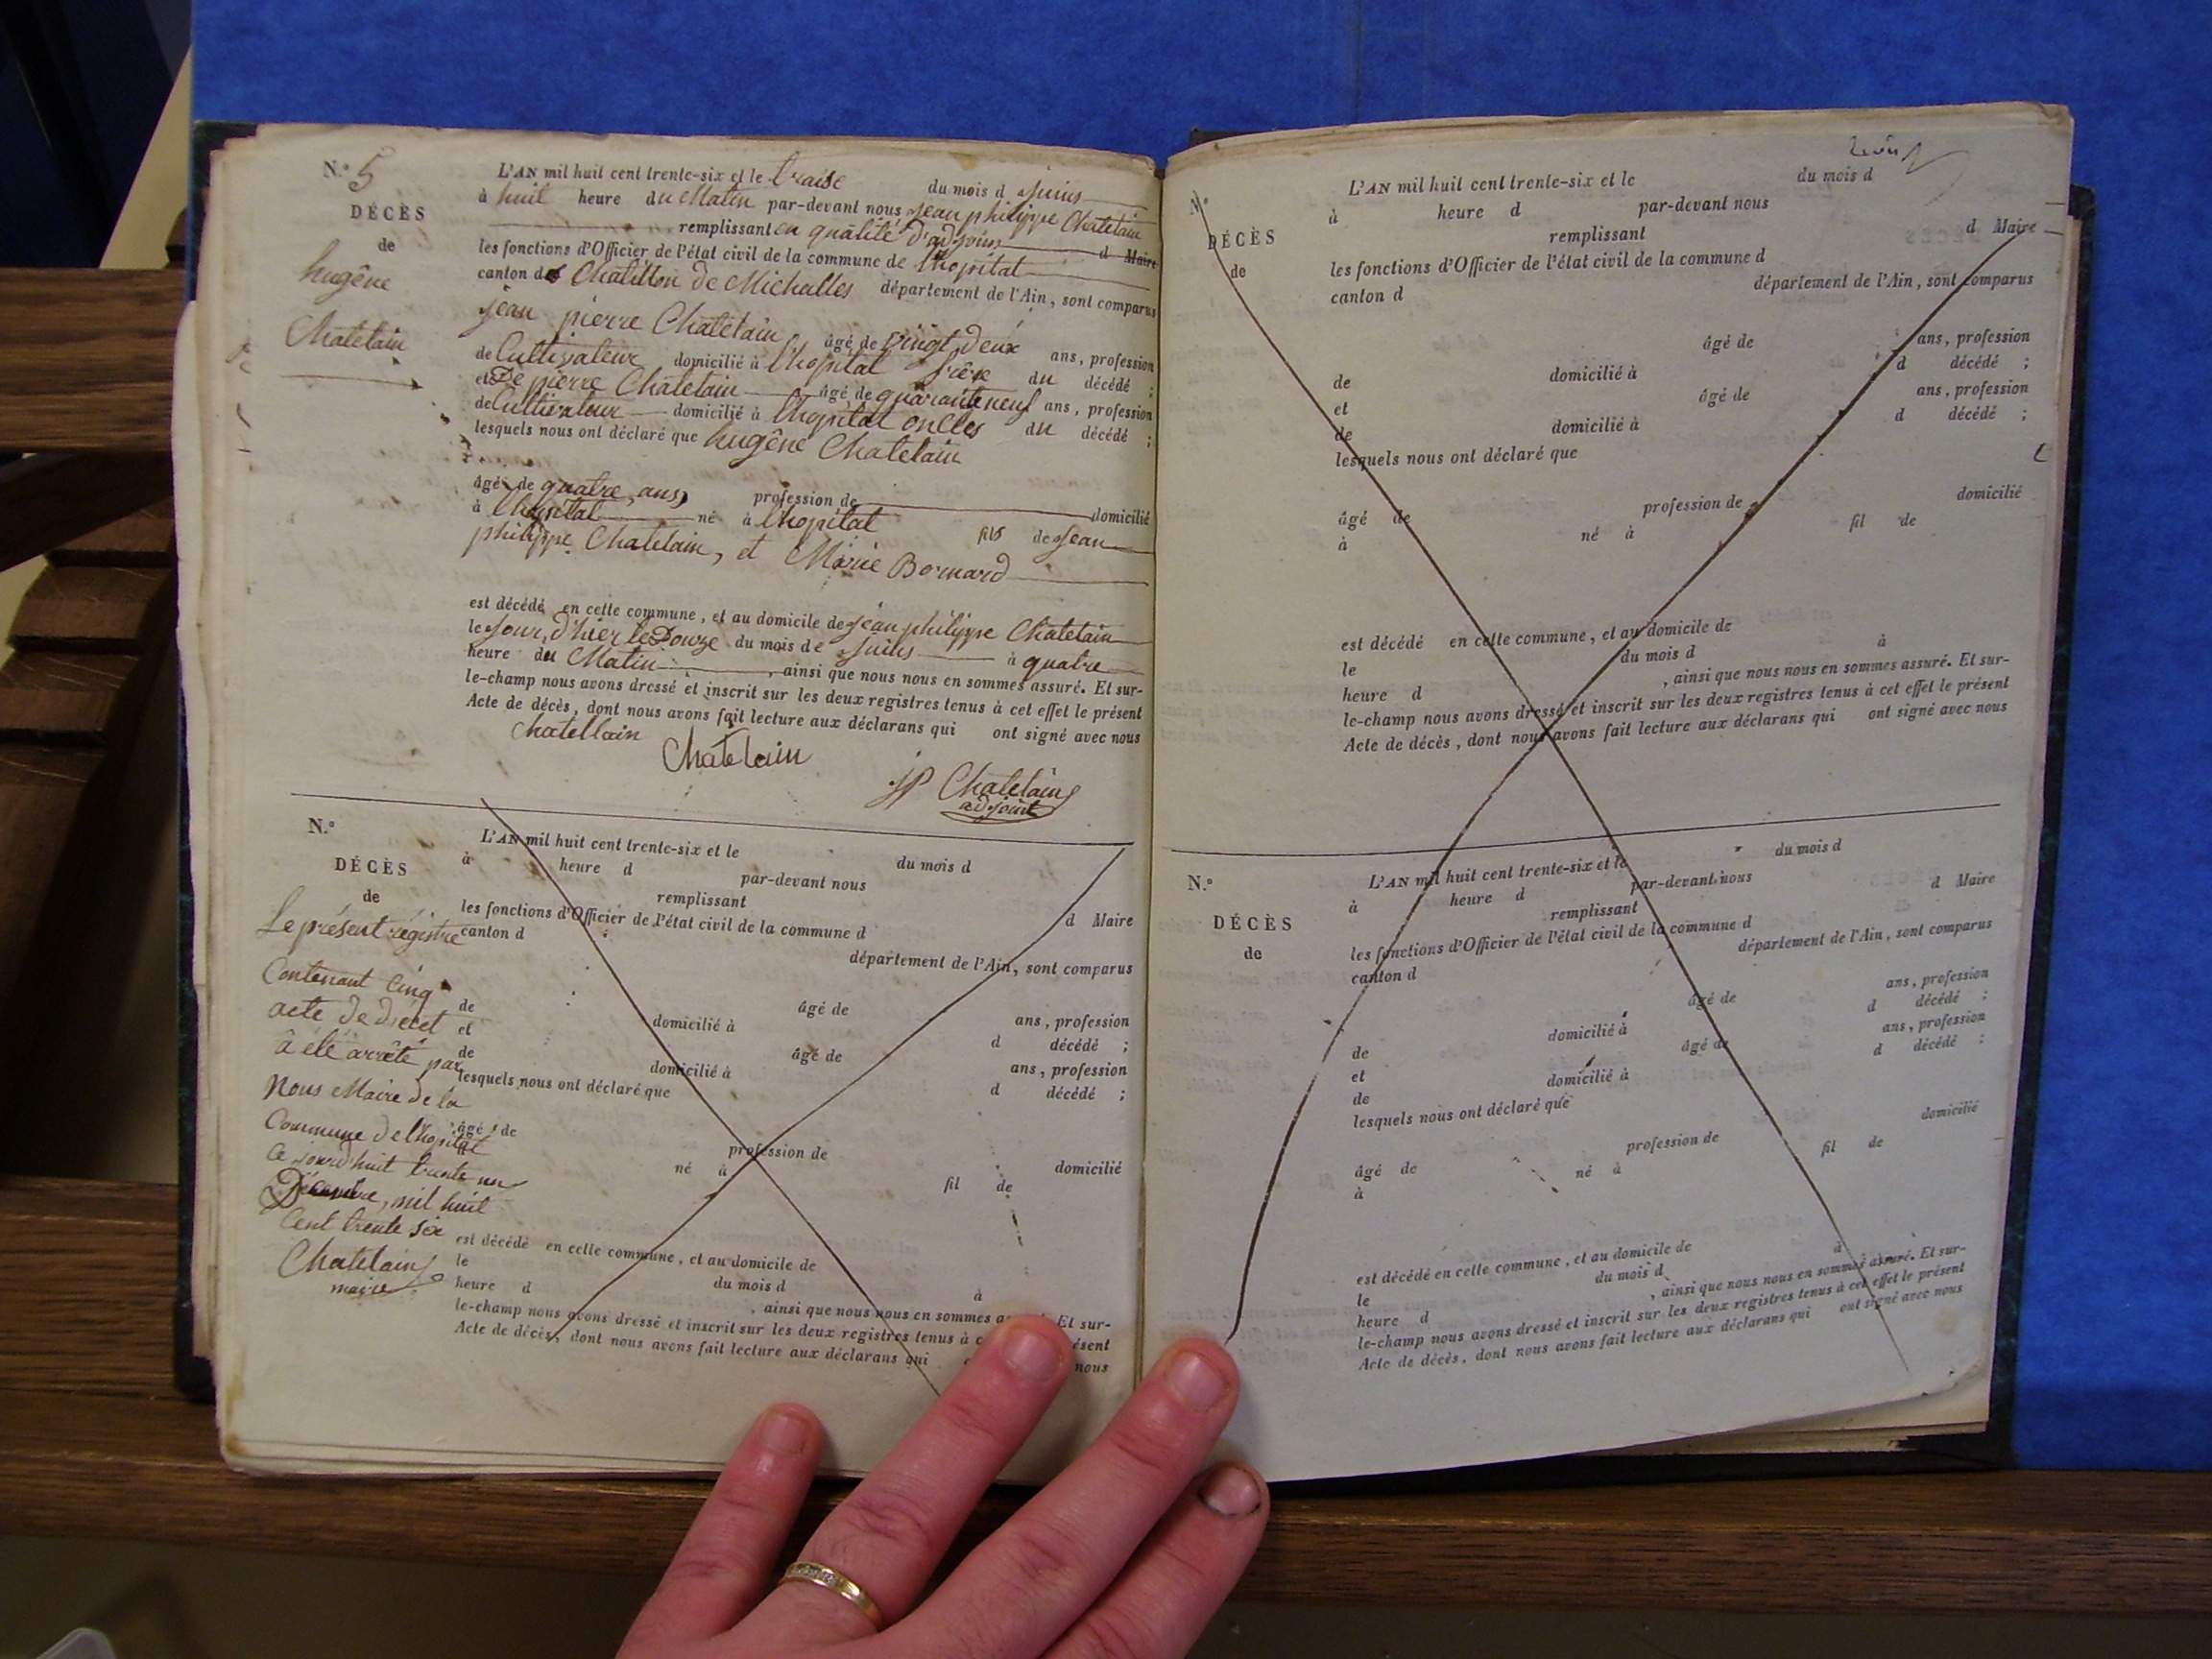 N.° 5
DÉCÈS
de
hugêne
Chatelain
L'AN mil huit cent trente-six et le traise du mois d juin
à huit heure du Matin par-devant nous jean philippe Chatelain
remplissant en qualité d'adjoint d Maire
les fonctions d'Officier de l'état civil de la commune de l'hopital
canton de Chatillon de Michalles département de l'Ain, sont comparus
jean pierre Chatelain âgé de vingt deux ans, profession
de Cultivateur domicilié à l'hopital frère du décédé ;
et De pierre Chatelain âgé de quarante neuf ans, profession
de Cultivateur domicilié à l'hopital oncles du décédé ;
lesquels nous ont déclaré que hugêne Chatelain
âgé de quatre ans, profession de domicilié
à l'hopital né à l'hopital fils de jean
philippe Chatelain, et Marie Bornard
est décédé en cette commune, et au domicile de jean philippe Chatelain
le jour d'hier le Douze du mois de juin à quatre
heure du Matin, ainsi que nous nous en sommes assuré. Et sur-
le-champ nous avons dressé et inscrit sur les deux registres tenus à cet effet le présent
Acte de décès, dont nous avons fait lecture aux déclarans qui ont signé avec nous
Chatellain
Chatelain
JP Chatelain
adjoint
N.°
DÉCÈS
de
Le présent régistre
Contenant Cinq
acte de décet
à été arrêté par
Nous Maire de la
Commune de l'hopital
Ce jourd'huit trente un
Décembre, mil huit
Cent trente six
Chatelain
maire
L'AN mil huit cent trente-six et le du mois d
à heure d par-devant nous
remplissant d Maire
les fonctions d'Officier de l'état civil de la commune d
canton d département de l'Ain, sont comparus
âgé de ans, profession
de domicilié à d décédé ;
et âgé de ans, profession
de domicilié à d décédé ;
lesquels nous ont déclaré que
âgé de profession de domicilié
né à fil de
est décédé en cette commune, et au domicile de
le du mois d à
heure d , ainsi que nous nous en sommes Et sur-
le-champ nous avons dressé et inscrit sur les deux registres tenus à
Acte de décès, dont nous avons fait lecture aux déclarans qui nous
N.°
DÉCÈS
de
L'AN mil huit cent trente-six et le du mois d
à heure d par-devant nous
remplissant d Maire
les fonctions d'Officier de l'état civil de la commune d
canton d département de l'Ain, sont comparus
âgé de ans, profession
de domicilié à d décédé ;
et âgé de ans, profession
de domicilié à d décédé ;
lesquels nous ont déclaré que
âgé de profession de domicilié
à né à fil de
est décédé en cette commune, et au domicile de
le du mois d à
heure d , ainsi que nous nous en sommes assuré. Et sur-
le-champ nous avons dressé et inscrit sur les deux registres tenus à cet effet le présent
Acte de décès, dont nous avons fait lecture aux déclarans qui ont signé avec nous
N.°
DÉCÈS
de
L'AN mil huit cent trente-six et le du mois d
à heure d par-devant nous
remplissant d Maire
les fonctions d'Officier de l'état civil de la commune d
canton d département de l'Ain, sont comparus
âgé de ans, profession
de domicilié à d décédé ;
et âgé de ans, profession
de domicilié à d décédé ;
lesquels nous ont déclaré que
âgé de profession de domicilié
à né à fil de
est décédé en cette commune, et au domicile de
le du mois d à
heure d , ainsi que nous nous en sommes assuré. Et sur-
le-champ nous avons dressé et inscrit sur les deux registres tenus à cet effet le présent
Acte de décès, dont nous avons fait lecture aux déclarans qui ont signé avec nous